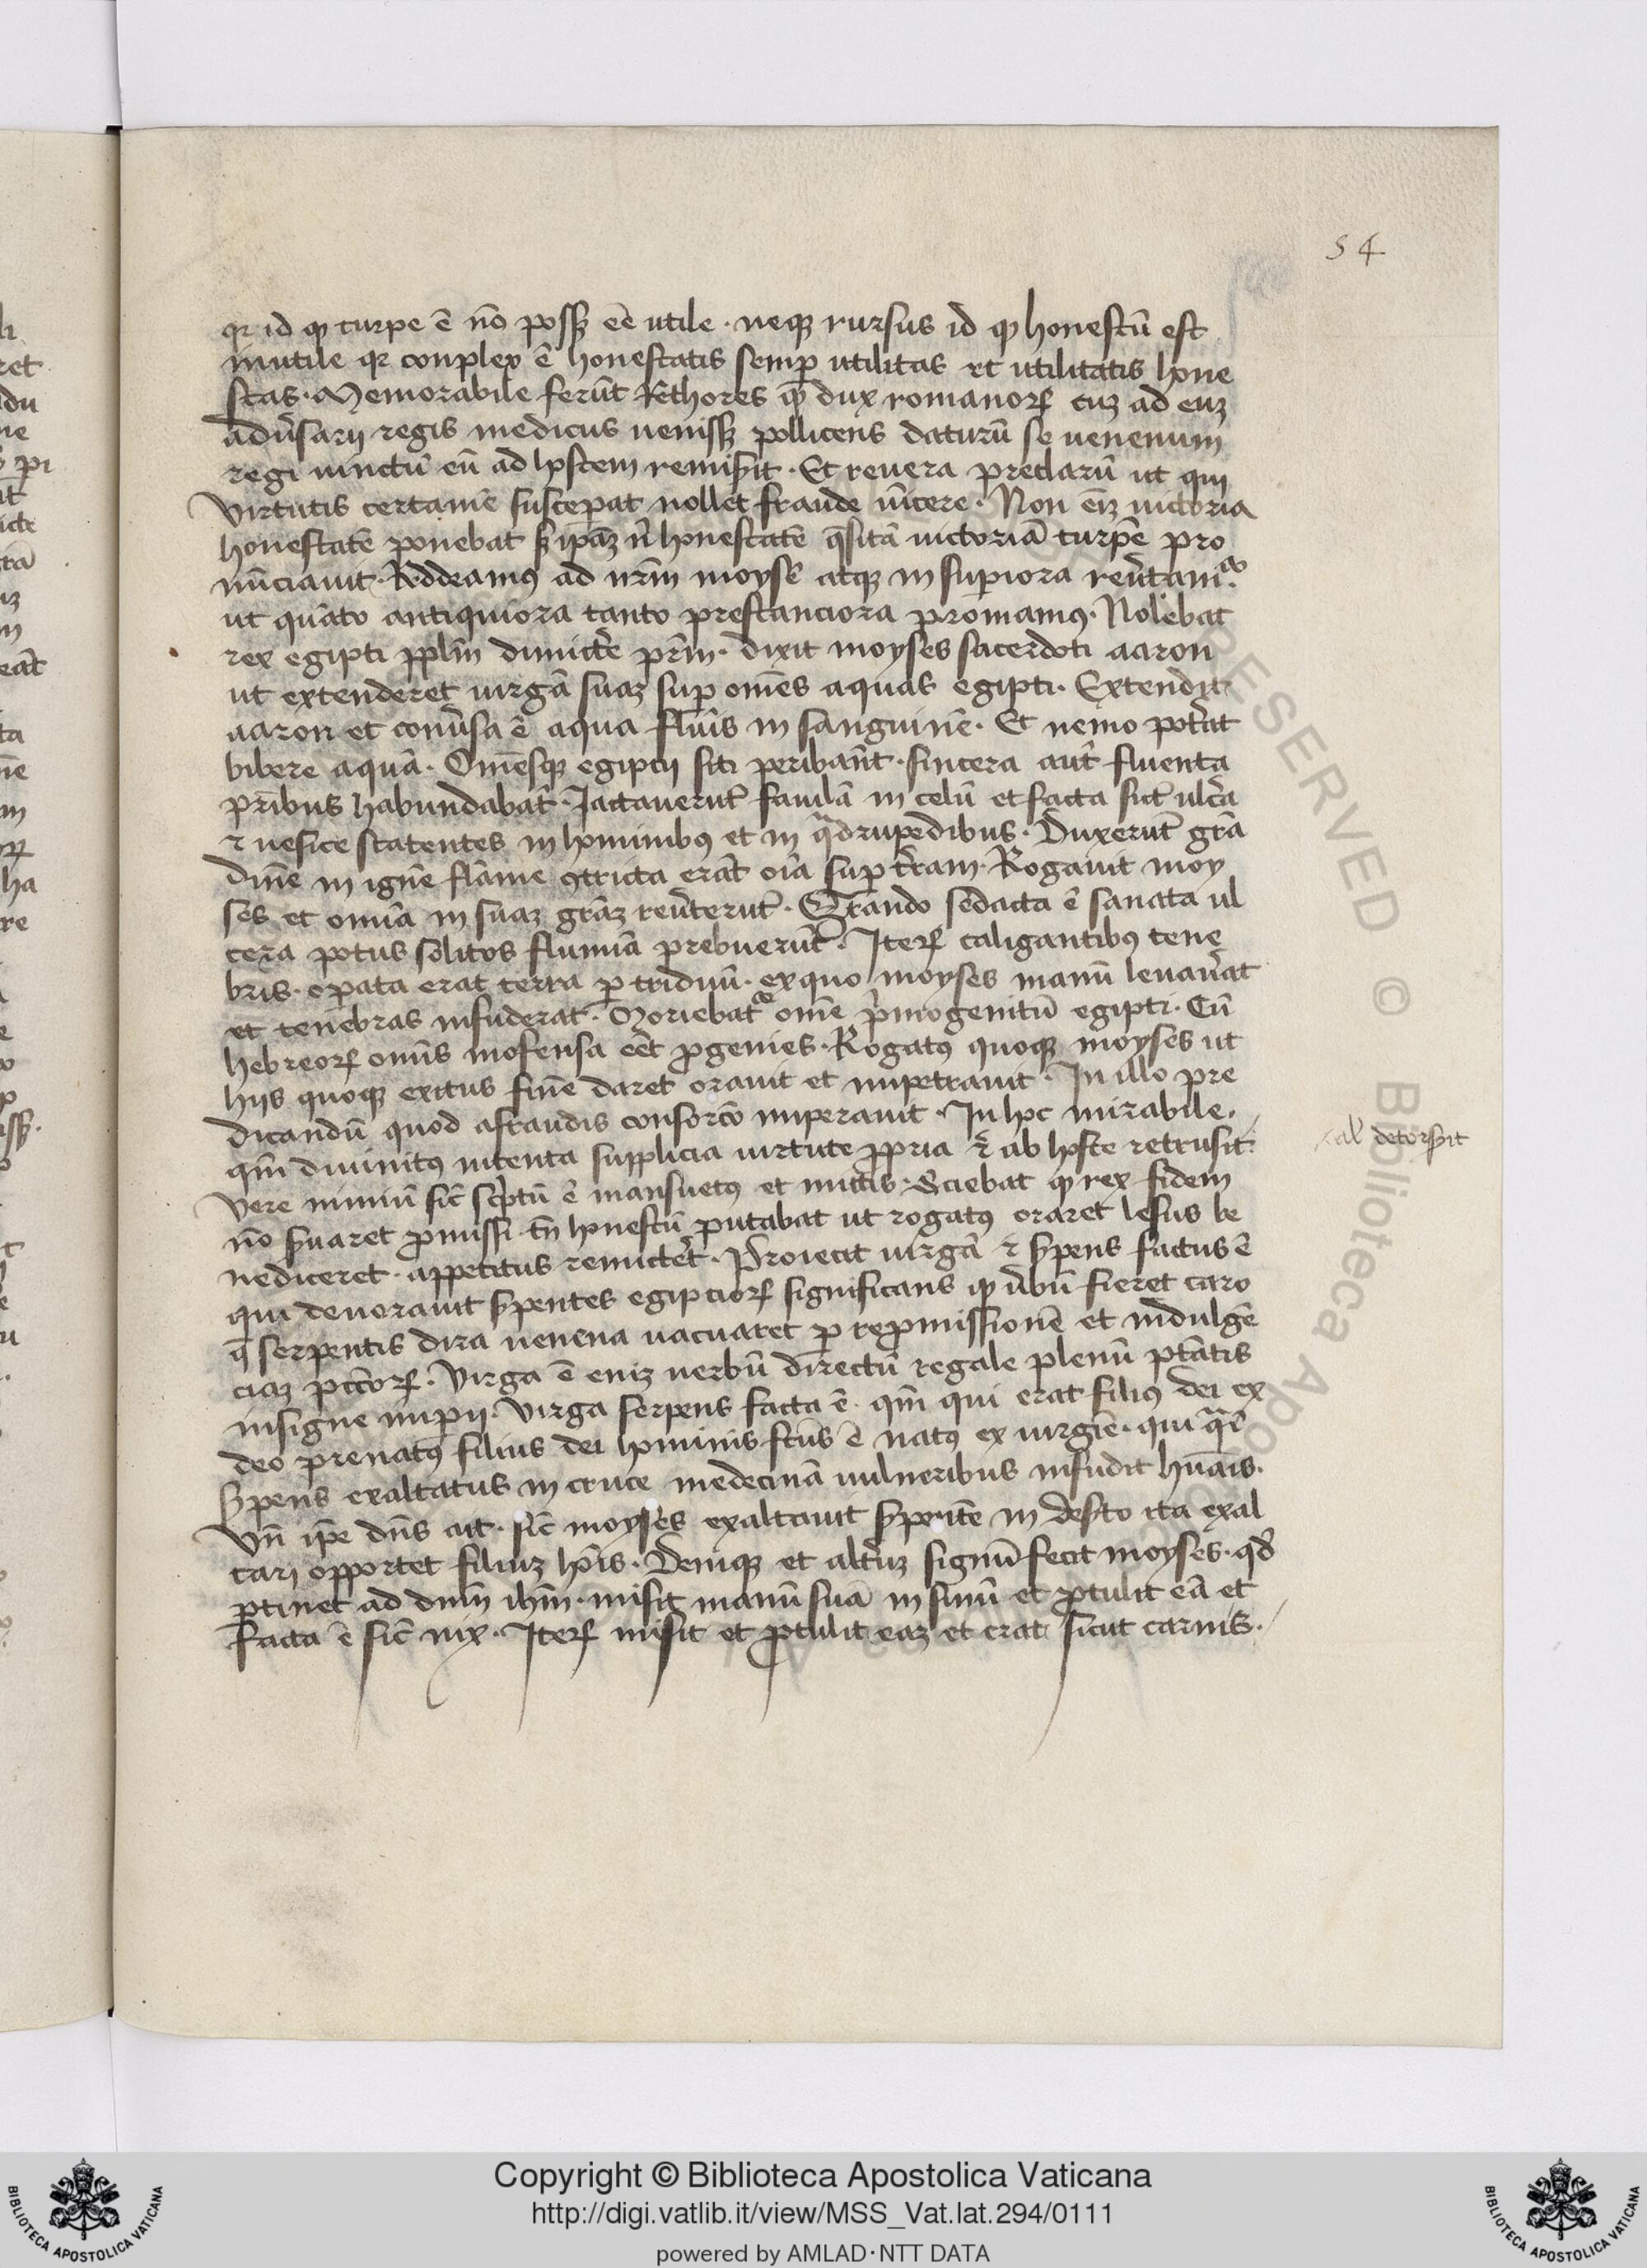 54
qr id qd turpe ē nō possꝫ eē utile · neqꝫ rursus id qd honestū est
inutile qr conplex ē honestatis semꝑ utilitas et utilitatis hone
stas · Memorabile ferūt Rethores qd dux romanorꝝ cuꝫ ad euꝫ
adūsarij regis medicus uenissꝫ pollicens daturū se uenenum
regi uinctū eū ad hostem remisit · Et reuera preclarū ut qui
virtutis certamē susceꝑat nollet fraude uīcere · Non eīꝫ uictoria
honestatē ponebat sꝫ ipāꝫ nͥ honestate q̄sitā uictoriā turpē pro
nūciauit · Reddeamꝰ ad nrm̄ moysē atqꝫ in suꝑiora reūtamꝰ ·
ut quāto antiquiora tanto prestanciora promamus · Nolebat
rex egipti pplm̄ dimictē prm̄ · dixit moyses sacerdoti aaron
ut extenderet uirgā suaꝫ suꝑ omēs aquas egipti · Extendit
aaron et conūsa ē aqua flūis in sanguinē · Et nemo potāt
bibere aquā · Omēsqꝫ egiptij siti peribāt · sincera aūt fluenta
pr̄ibus habundabāt · Jactauerūt fauilā in celū et facta sūt ulc̄a
⁊ uesice scatentes in hominibꝰ et in qͣdrupedibus · Duxerūt grā
dinē in igne flāme ꝯtricta erāt oīa suꝑ tr̄am · Rogauit moy
ses et omīa in suaꝫ grāꝫ reūterūt · Grando sedacta ē sanata ul
cera potus solitos flumīa prebuerūt · Iterꝝ caligantibꝰ tene
bris · oꝑata erat terra ꝑ triduū · ex quo moyses manū leuaūat
et tenebras infuderat · Moriebatͬ omē pͥmogenitū egipti · Cū
hebreorꝝ omīs inofensa eēt ꝓgenies · Rogatꝰ quoqꝫ moyses ut
hijs quoqꝫ exitus finē daret orauit et impetrauit · In illo pre
dicandū quod afraudis consorcō imperauit · In hoc mirabile ·
qm̄ diuinitꝰ intenta supplicia uirtute ꝓpria ⁊ ab hoste retrusit ·
al' detorsit
Vere nimiū sic̄ scͥptū ē mansuetꝰ et mittis · Sciebat qd rex fidem
nō sͥuaret ꝓmissi · tn̄ honestū putabat ut rogatꝰ oraret lesus be
nediceret · appetitus remictēt · Proiecit uirgā ⁊ sͥpens factus ē
qui deuorauit sͥpentes egipciorꝝ significans qd ūbū fieret caro
q̄ serpentis dira uenena uacuaret ꝑ reꝓmissionē et indulgē
ciaꝫ pcc̄orꝝ · Virga ē eniꝫ uerbū directū regale plenū ptātis
insigne imꝑij · Virga serpens facta ē · qm̄ qui erat filiꝰ dei ex
deo prenatꝰ filius dei hominis fc̄us ē natꝰ ex uirgīe · qui qͣi
sͥpens exaltatus in cruce medecinā uulneribus infudit hūāis ·
Vn̄ ip̄e dn̄s ait · sic̄ moyses exaltauit sͥpentē in desͥto ita exal
tari opportet filiuꝫ hōis · Deniqꝫ et altūꝫ signū fecit moyses · qd̄
ꝑtinet ad dnm̄ ihm̄ · misit manū suā in sinū et ꝓtulit eā et
facta ē sic̄ nix · Iterꝝ misit et ꝓtulit eaꝫ et erat sicut carnis ·
Copyright © Biblioteca Apostolica Vaticana
http://digi.vatlib.it/view/MSS_Vat.lat.294/0111
powered by AMLAD · NTT DATA